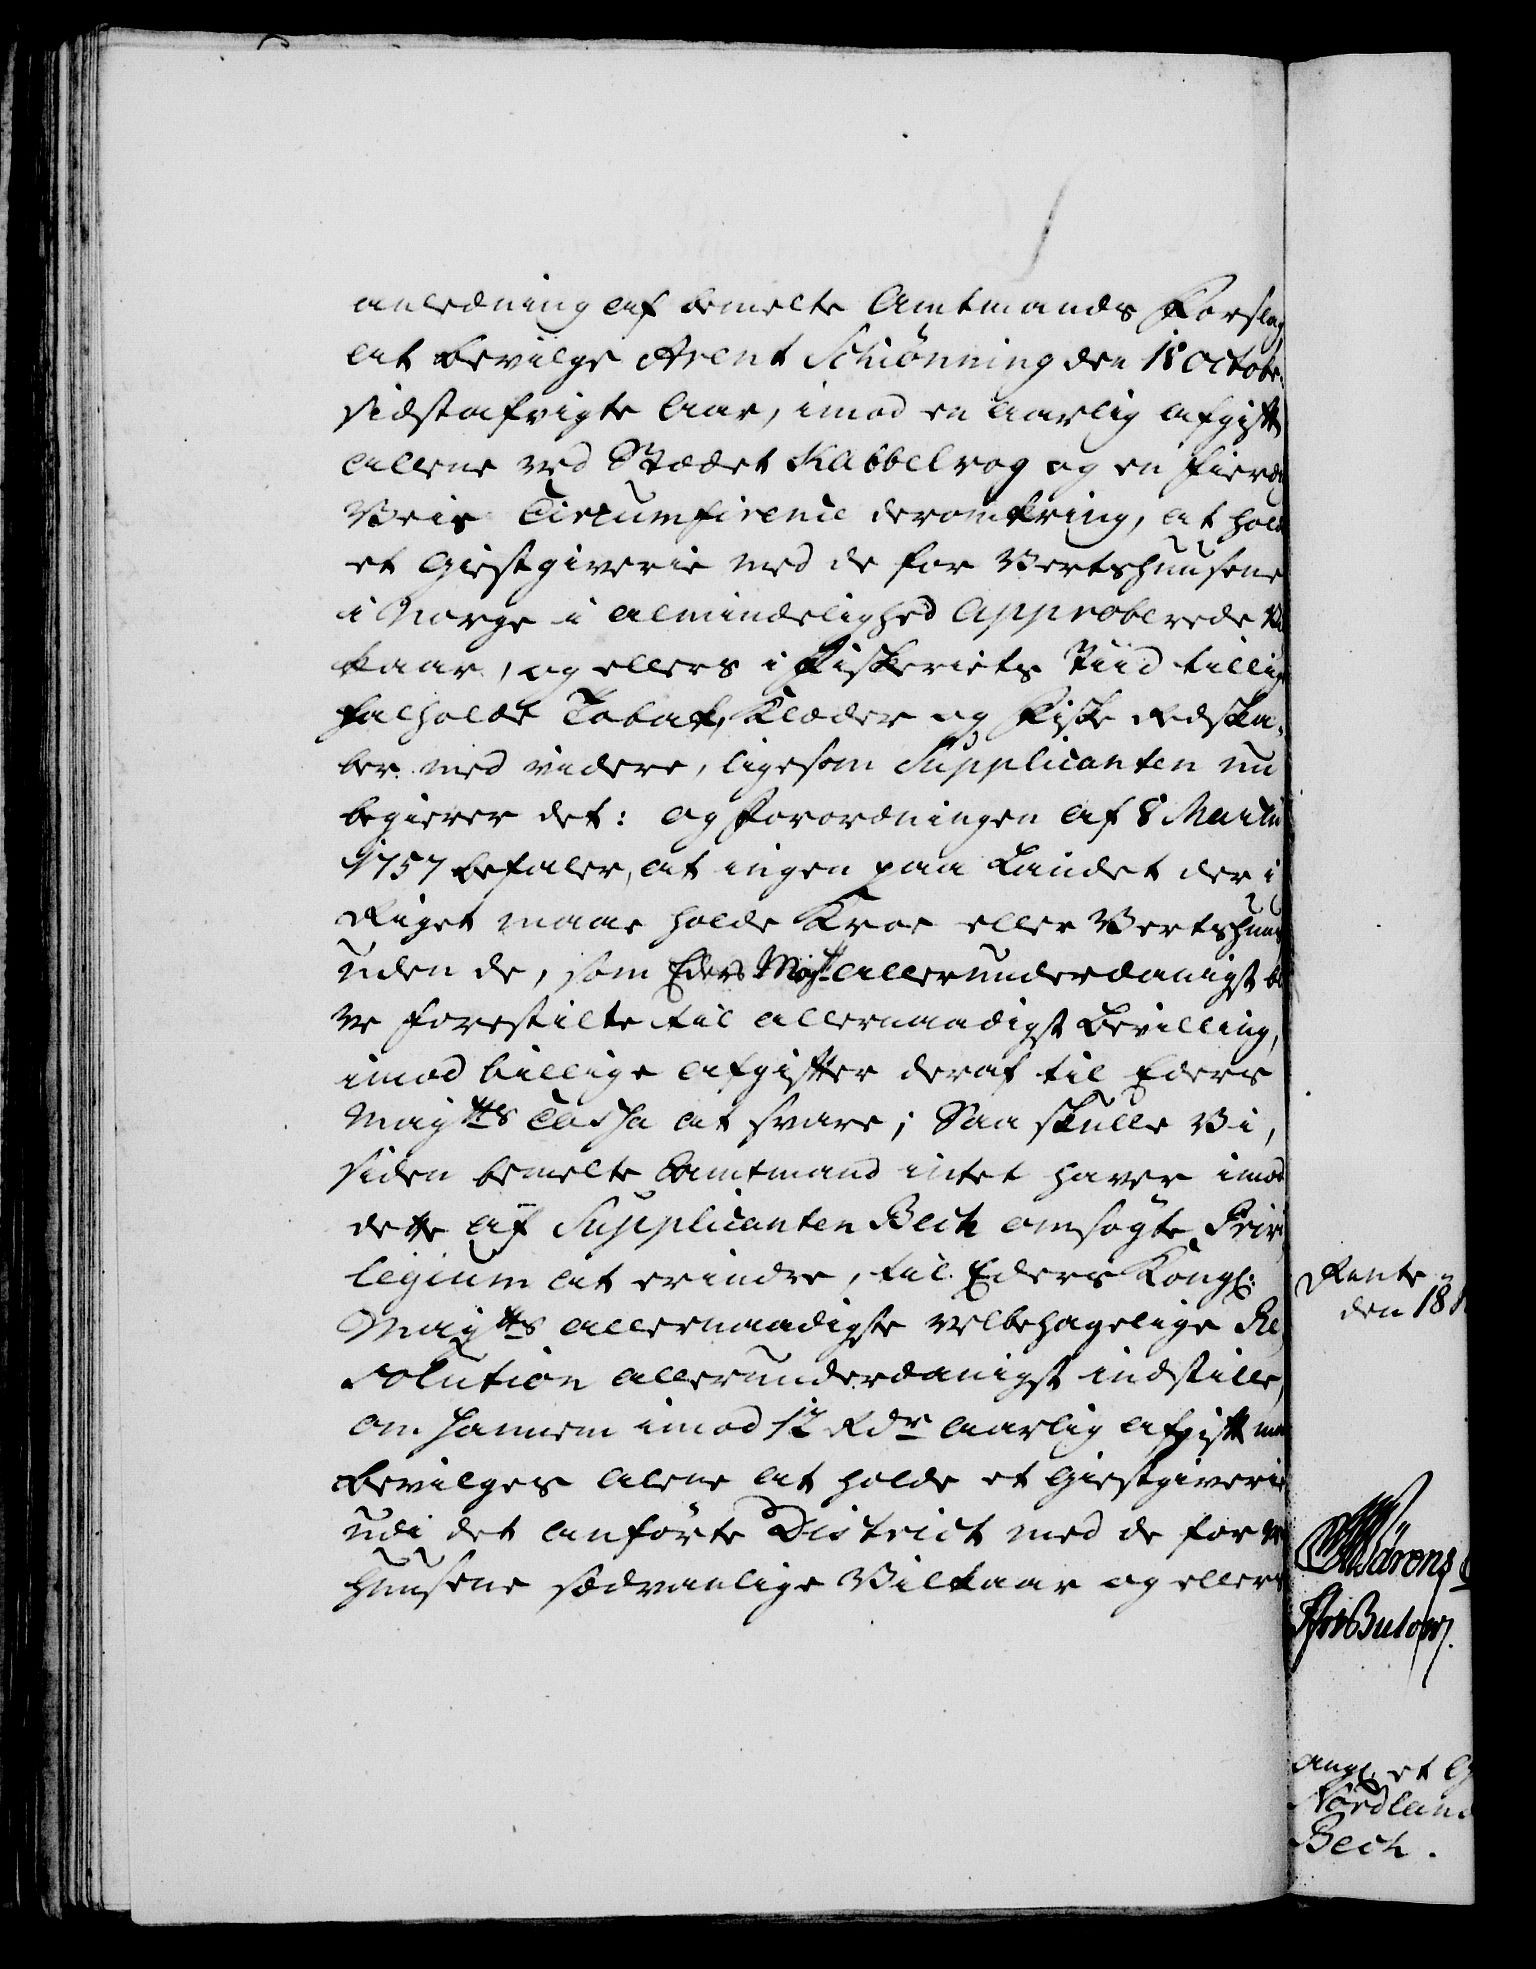 anledning af bemelte Amtmands Forslag,
at bevilge Arent Schiønning den 18 Octobr.
sidstafvigte Aar, imod en aarlig afgift
allene ved Stædet Kabbelvog og en fierd
Veis Circumference deromkring, at hold
et Giestgiverie med de for Vertshuusene
i Norge i almindelighed Approberede Vil
kaar, og ellers i Fiskeriets Tiid tillig
falholde Tobak, Klæder og Fiske Redska,
ber med videre, ligesom Supplicanten nu
begierer det: og Forordningen af 8 Martii
1757 befaler, at ingen paa Landet der i
Riget maae holde Kroe eller Vertshuus
uden de, som Eders Mayt. allerunderdanigst bli
ve forestilte til allernaadigst Bevilling,
imod billige afgifter deraf til Eders
Mayts Cassa at svare; Saa skulle Vi,
siden bemelte Amtmand intet haver imod
dette af Supplicanten Bech omsøgte Privi
legium at erindre, til Eders Kongl:
Mayts allernaadigste velbehagelige Re,
solution allerunderdanigst indstille,
om hannem imod 12 Rdr aarlig afgift maa
bevilges alene at holde et Giestgiverie
udi det anførte District med de for Ve
huusene sædvanlige Vilkaar og ellers
Rente
den 18
Bulow.
ang. et G
Nordland
Bech.